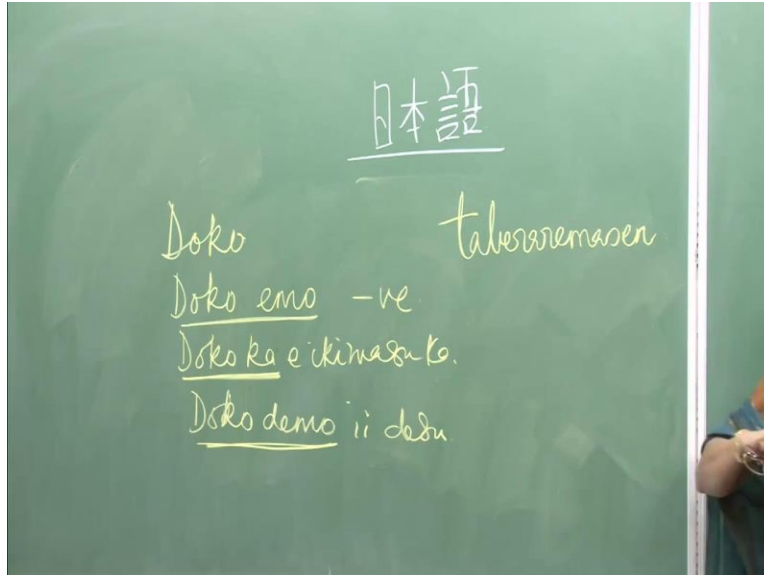 日本語
Doko taberaremasen
Doko emo -ve.
Doko ka e ikimasu ka.
Doko demo ii desu.